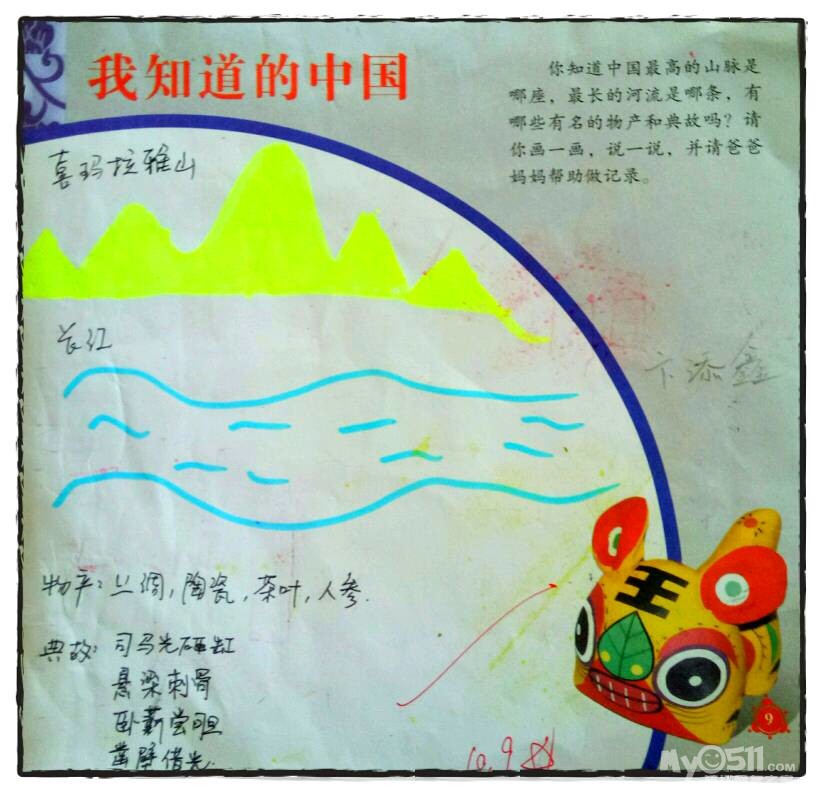 我知道的中国
你知道中国最高的山脉是
哪座，最长的河流是哪条，有
哪些有名的物产和典故吗？请
你画一画，说一说，并请爸爸
妈妈帮助做记录。
喜玛拉雅山
长江
卞添鑫
物产：丝绸，陶瓷，茶叶，人参.
典故：司马光砸缸
悬梁刺骨
卧薪尝胆
凿壁借光.
王
10.9
9
My0511.com